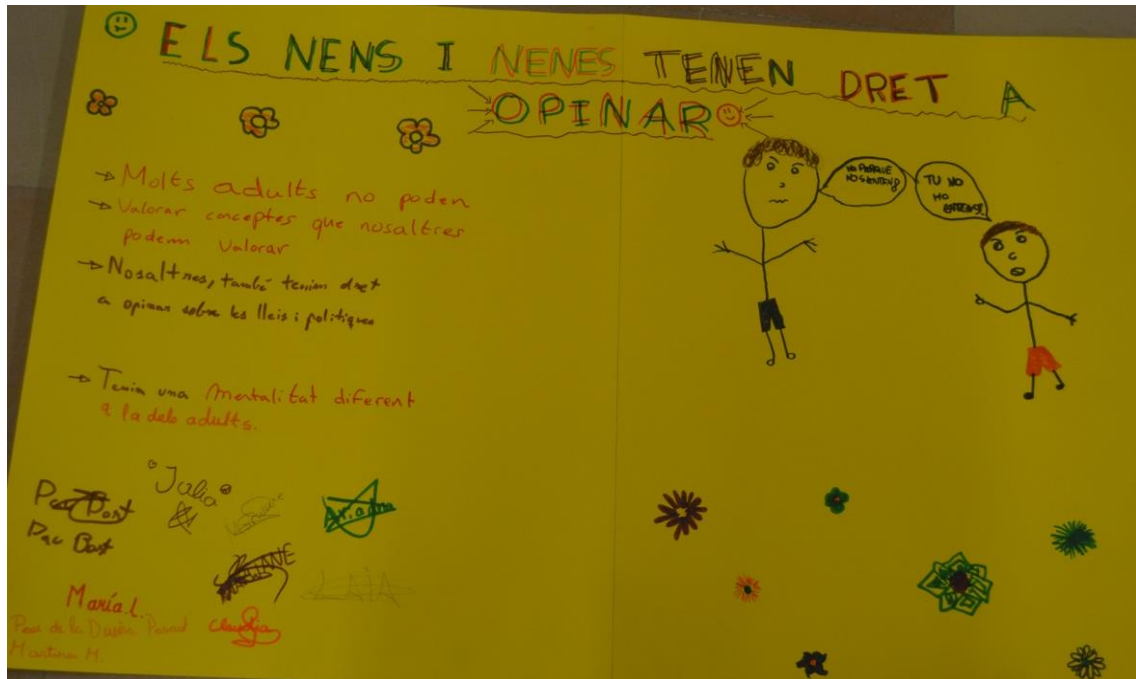 ELS NENS I NENES TENEN DRET A
OPINAR
→ Molts adults no poden
→ Valorar conceptes que nosaltres
podem valorar
→ Nosaltres, també tenim dret
a opinar sobre les lleis i politiques
→ Tenim una mentalitat diferent
a la dels adults.
NO PERQUÈ
NO
TU NO
HO
Julia
Ariadna
Pau Bost
LAIA
María L.
Claudia
Pau de la
Martina M.